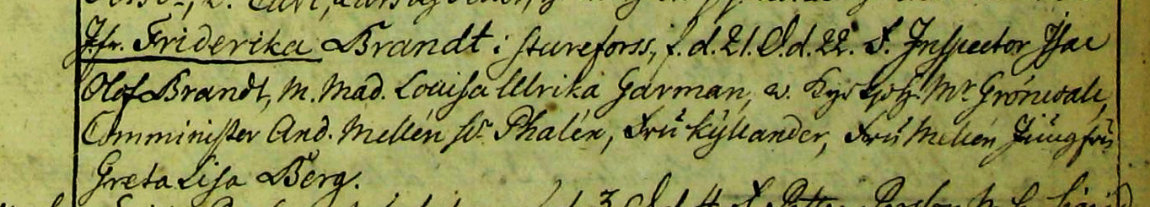 Jfr. Friderika Brandt i Stureforss, f. d. 21. D. d. 22. F. Inspector Isac
Olof Brandt, M. Mad. Lovisa Ulrika Garman, w. Kyrkohz Mr Grönwall,
Comminister And. Mellén Sr Phalén, Fru Kyllander, Fru Mellén Jungfru
Greta Lisa Berg.